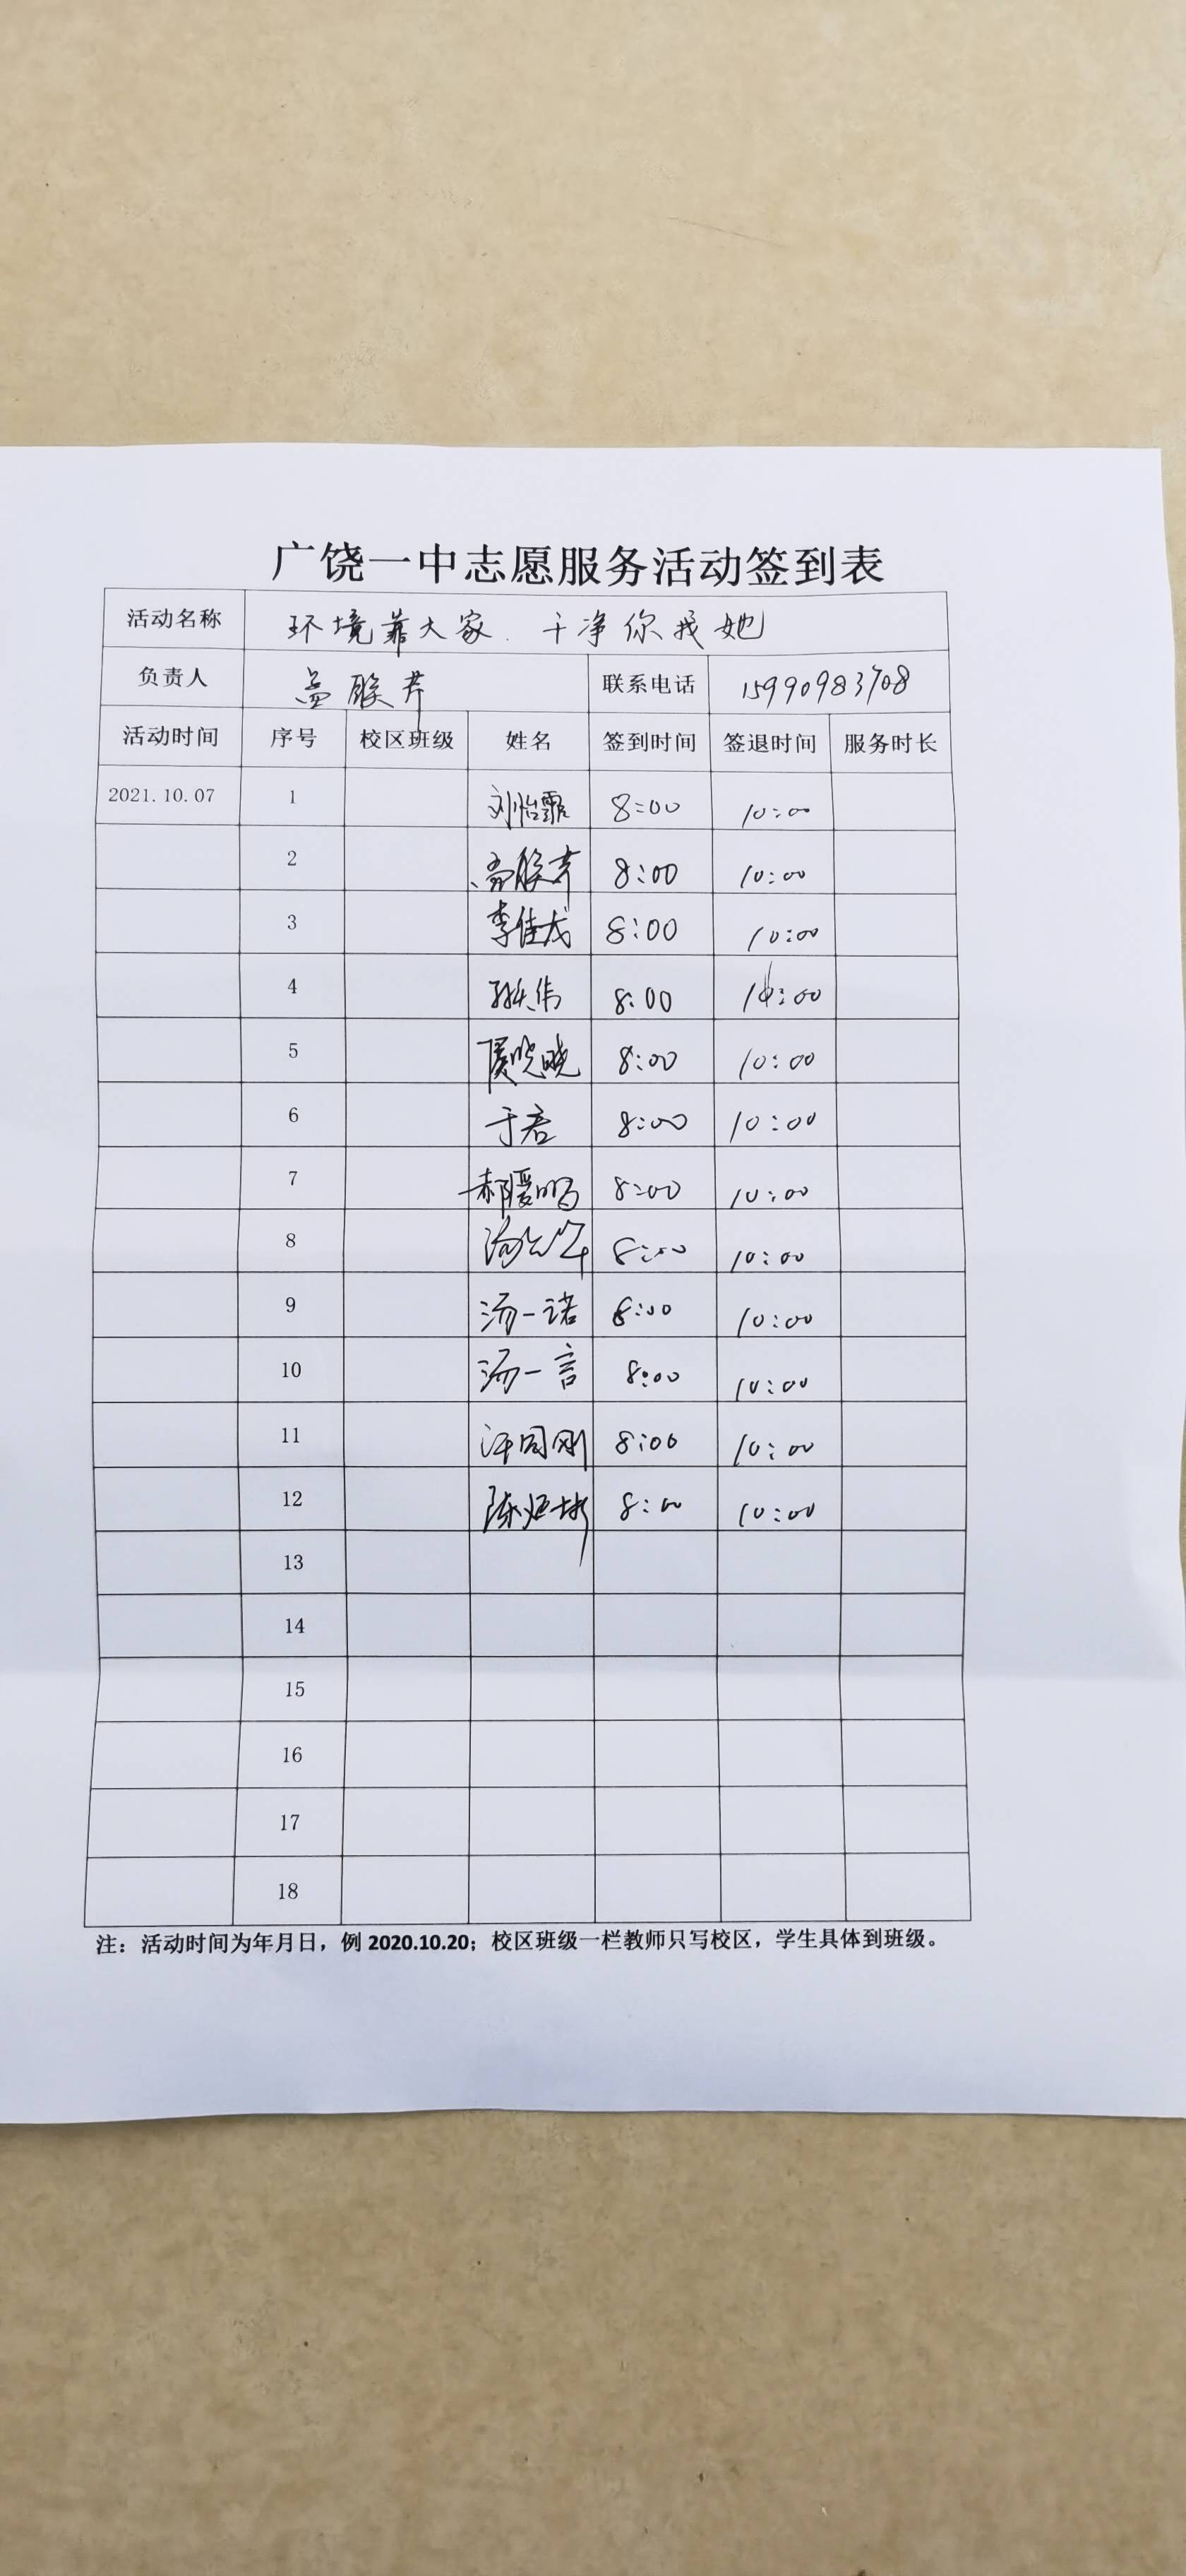 广饶一中志愿服务活动签到表
活动名称 环境靠大家、干净你我她
负责人 联系电话 15990983708
活动时间 序号 校区班级 姓名 签到时间 签退时间 服务时长
2021.10.07 1 刘怡霏 8:00 10:00
2 8:00 10:00
3 李佳 8:00 10:00
4 8:00 10:00
5 8:00 10:00
6 于君 8:00 10:00
7 郝 8:00 10:00
8 8:00 10:00
9 汤一诺 8:00 10:00
10 汤一言 8:00 10:00
11 8:00 10:00
12 陈 8:00 10:00
13
14
15
16
17
18
注：活动时间为年月日，例 2020.10.20；校区班级一栏教师只写校区，学生具体到班级。